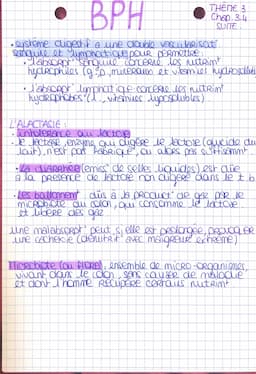 BPH
THÈME 3
Chap. 3.4
SUITE
• système digestif a une double vascularisat°
sanguine et lymphatique pour permettre :
• l'absorpt° sanguine concerne les nutrim†
hydrophiles (g, p, nutriments et vitamines hydrosolub
• l'absorpt° lymphatique concerne les nutrim†
hydrophobes (l, vitamines liposolubles)
L'ALACTASIE :
• intolérance au lactose
• le lactase enzyme qui digère le lactose (glucide du
lait), n'est pas fabriqué, ou alors pas suffisamment
• La diarrhée (émis° de selles liquides) est due
à la présence de lactose non digéré dans le t b
• Les ballonement dûs à la product° de gaz par le
microbiote du colon, qui consomme le lactose
et libère des gaz
Une malabsorpt° peut, si elle est prolongée, provoquer
une cachexie (dénutrit° avec maigreur extrême)
Microbiote (ou flore) : ensemble de micro-organismes,
vivant dans le colon, sans causer de maladie
et dont l'homme récupère certains nutrim†